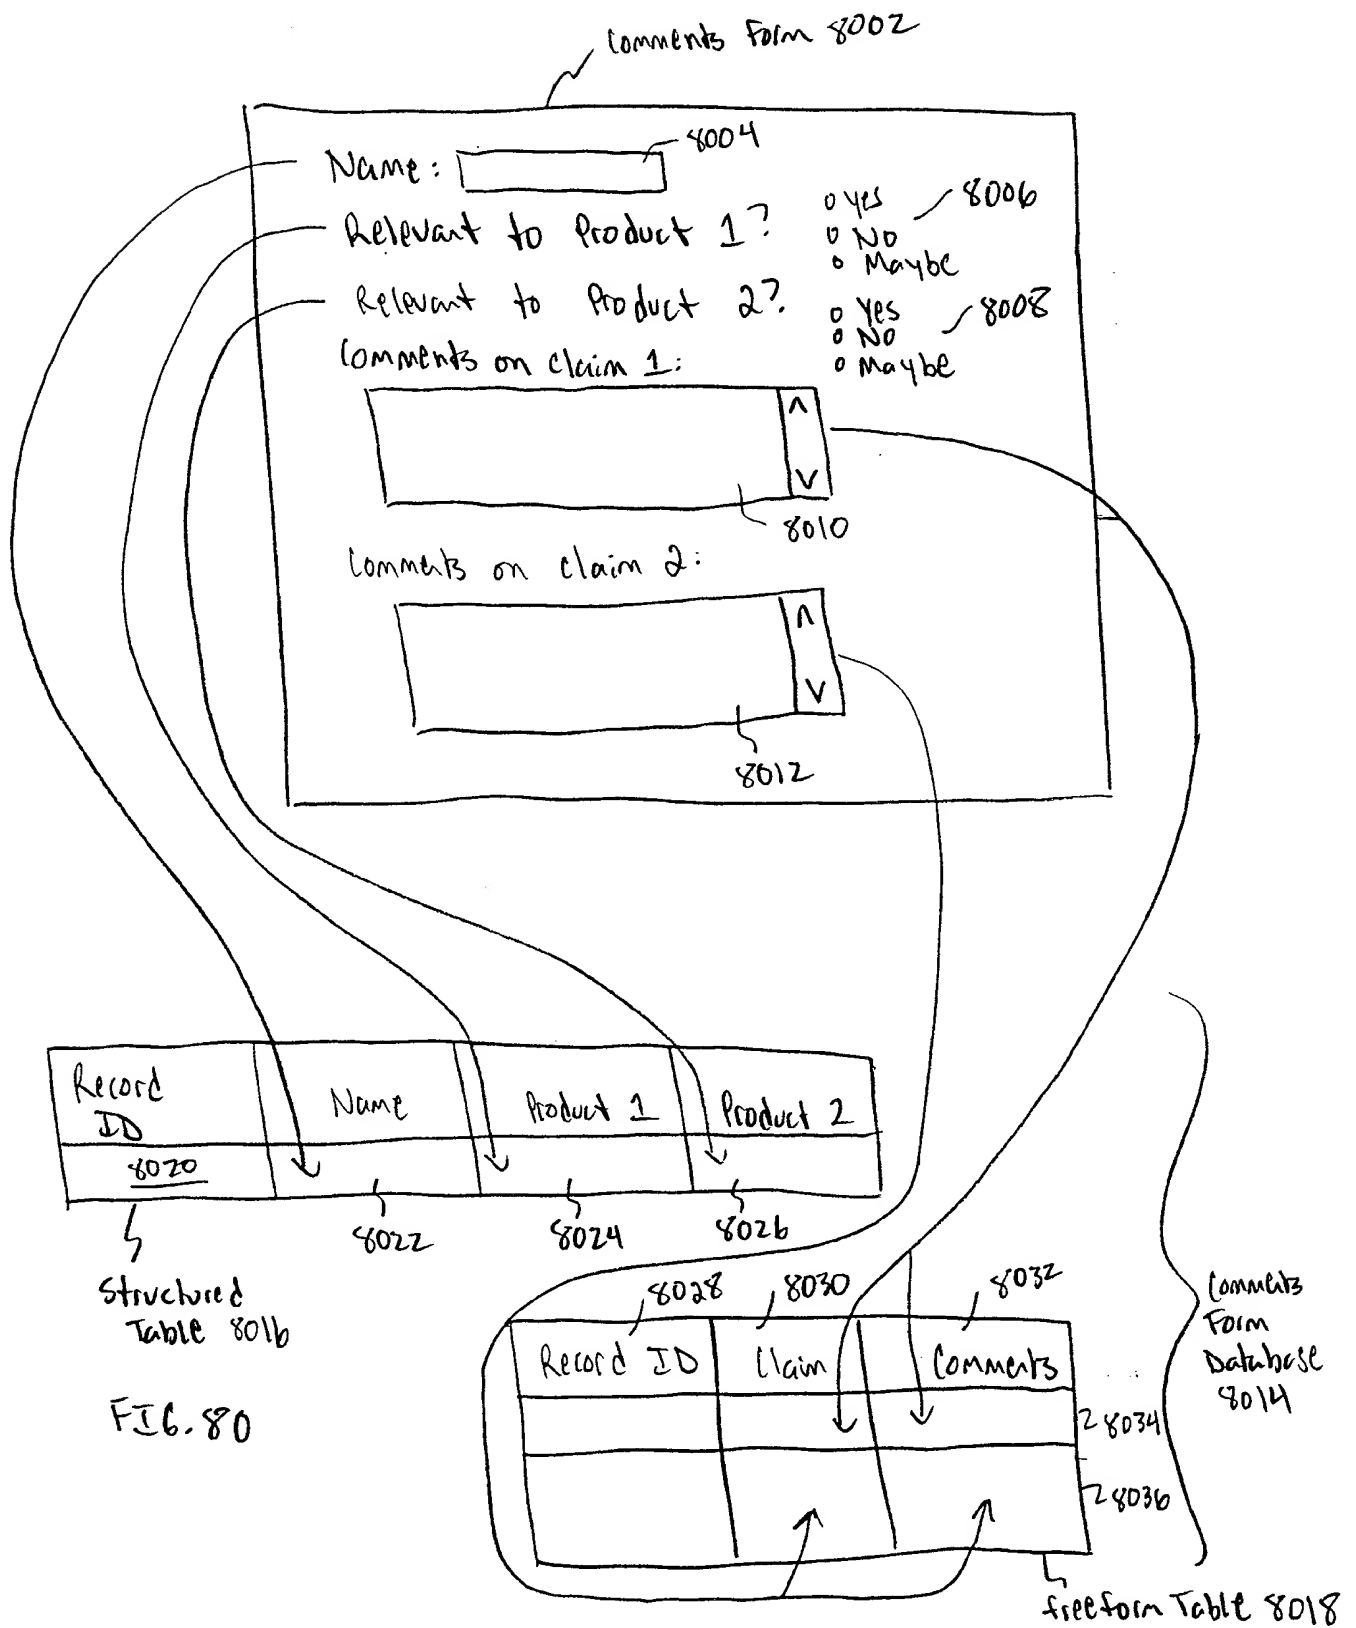 Comments Form 8002
Name: 8004
Relevant to Product 1? Yes 8006
No
Maybe
Relevant to Product 2? Yes 8008
No
Maybe
Comments on Claim 1:
8010
Comments on Claim 2:
8012
Record ID Name Product 1 Product 2
8020
8022 8024 8026
Structured
Table 8016
8028 8030 8032
Record ID Claim Comments
8034
8036
Comments
Form
Database
8014
FIG. 80
freeform Table 8018